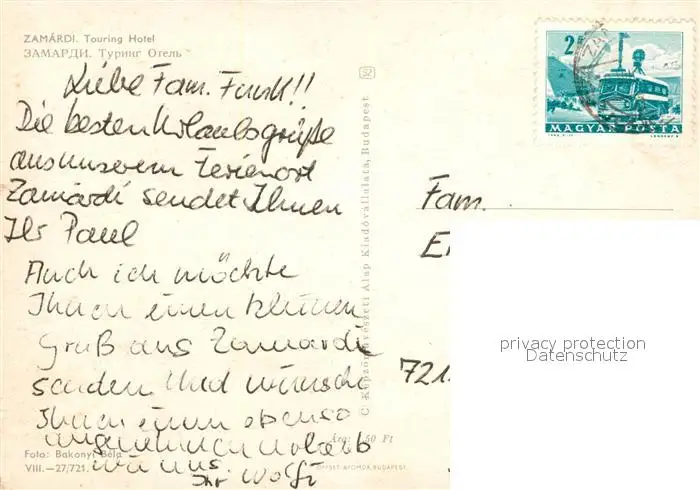 ZAMÁRDI. Touring Hotel
ЗАМАРДИ. Туринг Отель
Liebe Fam. Funk!!
Die besten Urlaubsgrüße
aus unserem Ferienort
Zamárdi sendet Ihnen
Ihr Paul
Auch ich möchte
Ihnen einen kleinen
Gruß aus Zamárdi
senden. Und wünsche
Ihnen einen ebenso
angenehmen Urlaub
wie uns.
Ihr Wolfi
Foto: Bakonyi Béla
VIII.—27/721.
Ára: 1,50 Ft
OFFSET NYOMDA BUDAPEST
© Képzőművészeti Alap Kiadóvállalata, Budapest
2 Ft
MAGYAR POSTA
Fam.
721
privacy protection
Datenschutz